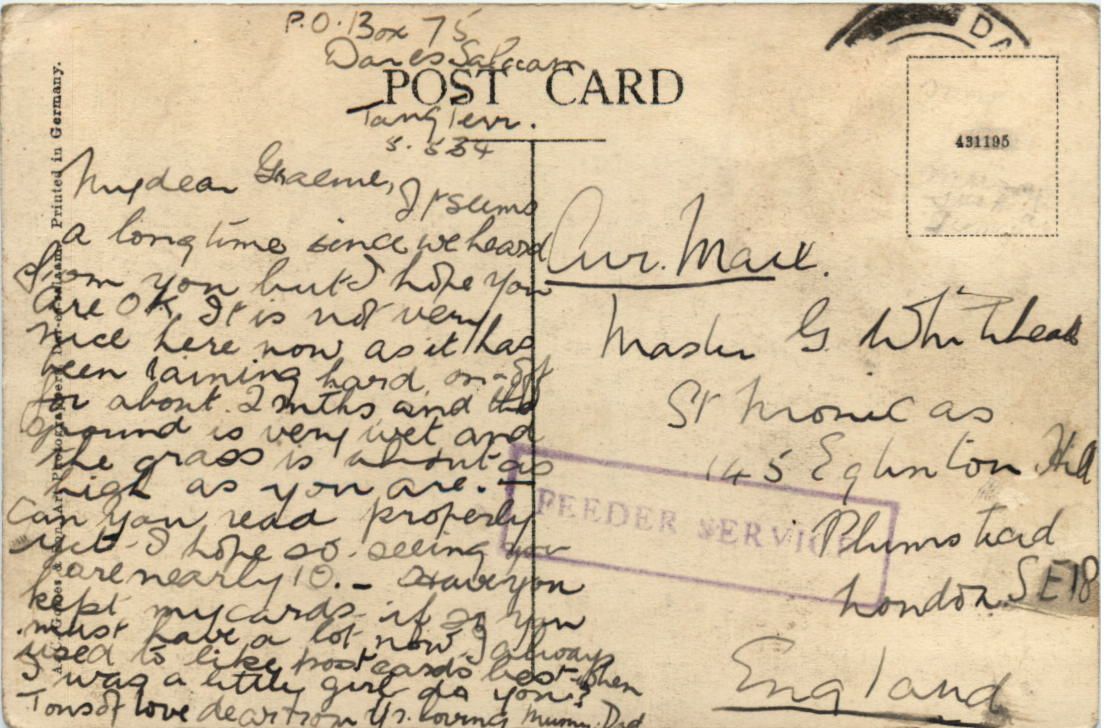 P.O. Box 75
Dar es Salaam
POST CARD
Tang Terr.
5.5.34
My dear Graeme,
It seems
a long time since we heard
from you but I hope you
are OK. It is not very
nice here now as it has
been raining hard on & off
for about 2 mths and the
ground is very wet and
the grass is about as
high as you are.
Can you read properly
yet - I hope so - seeing you
are nearly 10. - Have you
kept my cards - if so you
must have a lot now I always
used to like postcards best when
I was a little girl do you?
Tons of love dear from Yr. loving Mum. Dad
Air. Mail.
Master G. Whitehead
St Monicas
145 Eglinton Hill
Plumstead
London. SE18
England
FEEDER SERVICE
431195
DA
Art Photographers, Dar-es-Salaam. Printed in Germany.